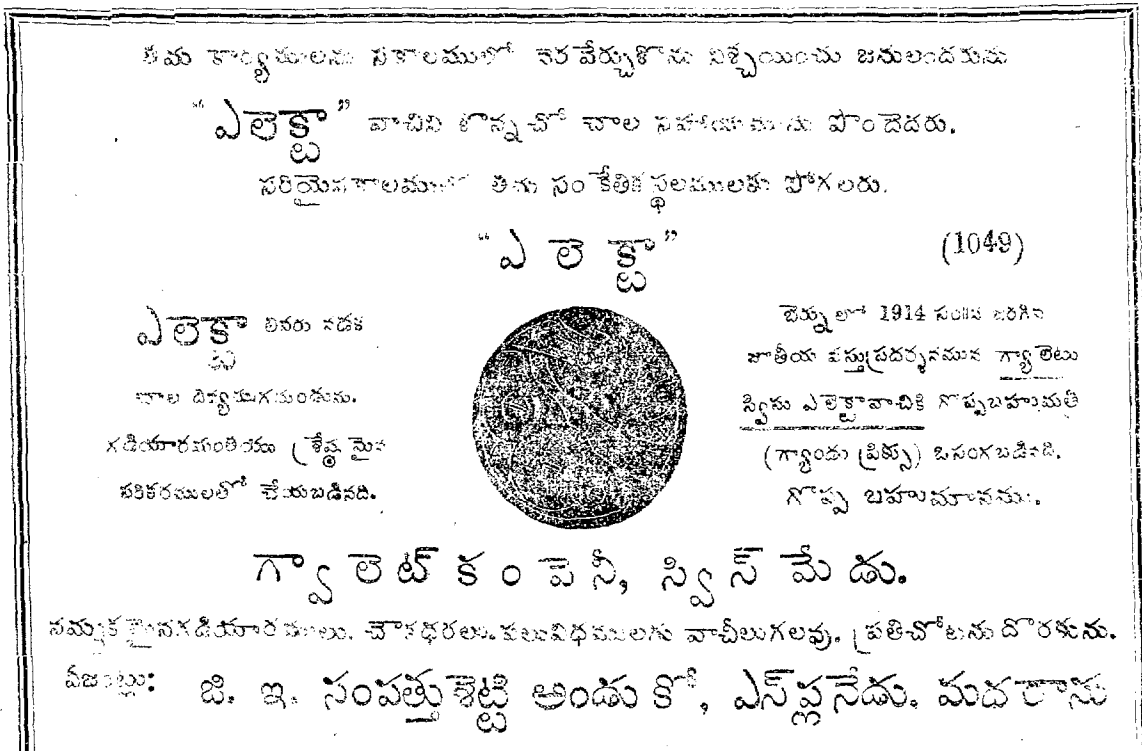 తమ కార్యములను సకాలములో నెరవేర్చుకొను నిశ్చయించు జనులందరును
"ఎలెక్ట్రా" వాచిని కొన్నచో చాల సహాయమును పొందెదరు.
సరియైనకాలములో తమ సంకేతికస్థలములకు పోగలరు.
"ఎ లె క్ట్రా" (1049)
ఎలెక్ట్రా లివరు నడక
చాల దివ్యముగనుండును.
గడియారమంతయు శ్రేష్ఠమైన
పరికరములతో చేయబడినది.
బెర్ను లో 1914 సం॥న జరిగిన
జాతీయ వస్తుప్రదర్శనమున గ్యాలెటు
స్విసు ఎలెక్ట్రావాచికి గొప్పబహుమతి
(గ్యాండు ప్రిక్సు) ఒసంగబడినది.
గొప్ప బహుమానము.
గ్వాలెట్ కంపెనీ, స్విస్ మేడు.
నమ్మకమైనగడియారములు. చౌకధరలు. పలువిధములగు వాచీలుగలవు. ప్రతిచోటను దొరకును.
ఏజంట్లు: జి. ఇ. సంపత్తుశెట్టి అండు కో, ఎస్‌ప్లనేడు. మదరాసు